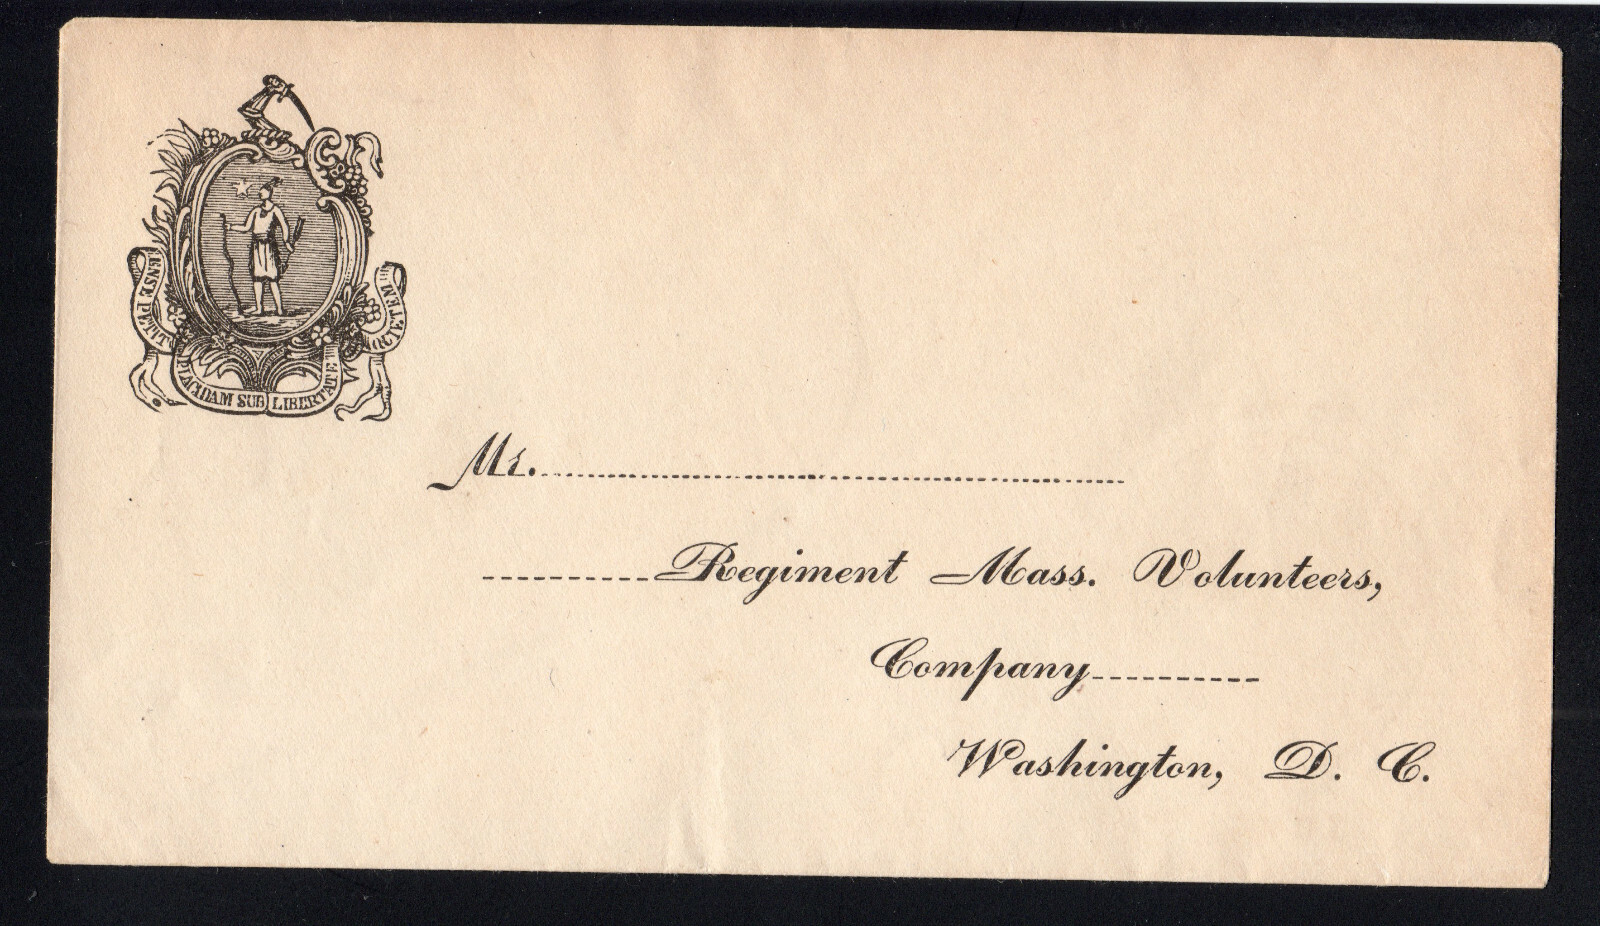 ENSE PETIT
PLACIDAM SUB LIBERTATE
QUIETEM
Mr.
Regiment Mass. Volunteers,
Company
Washington, D. C.